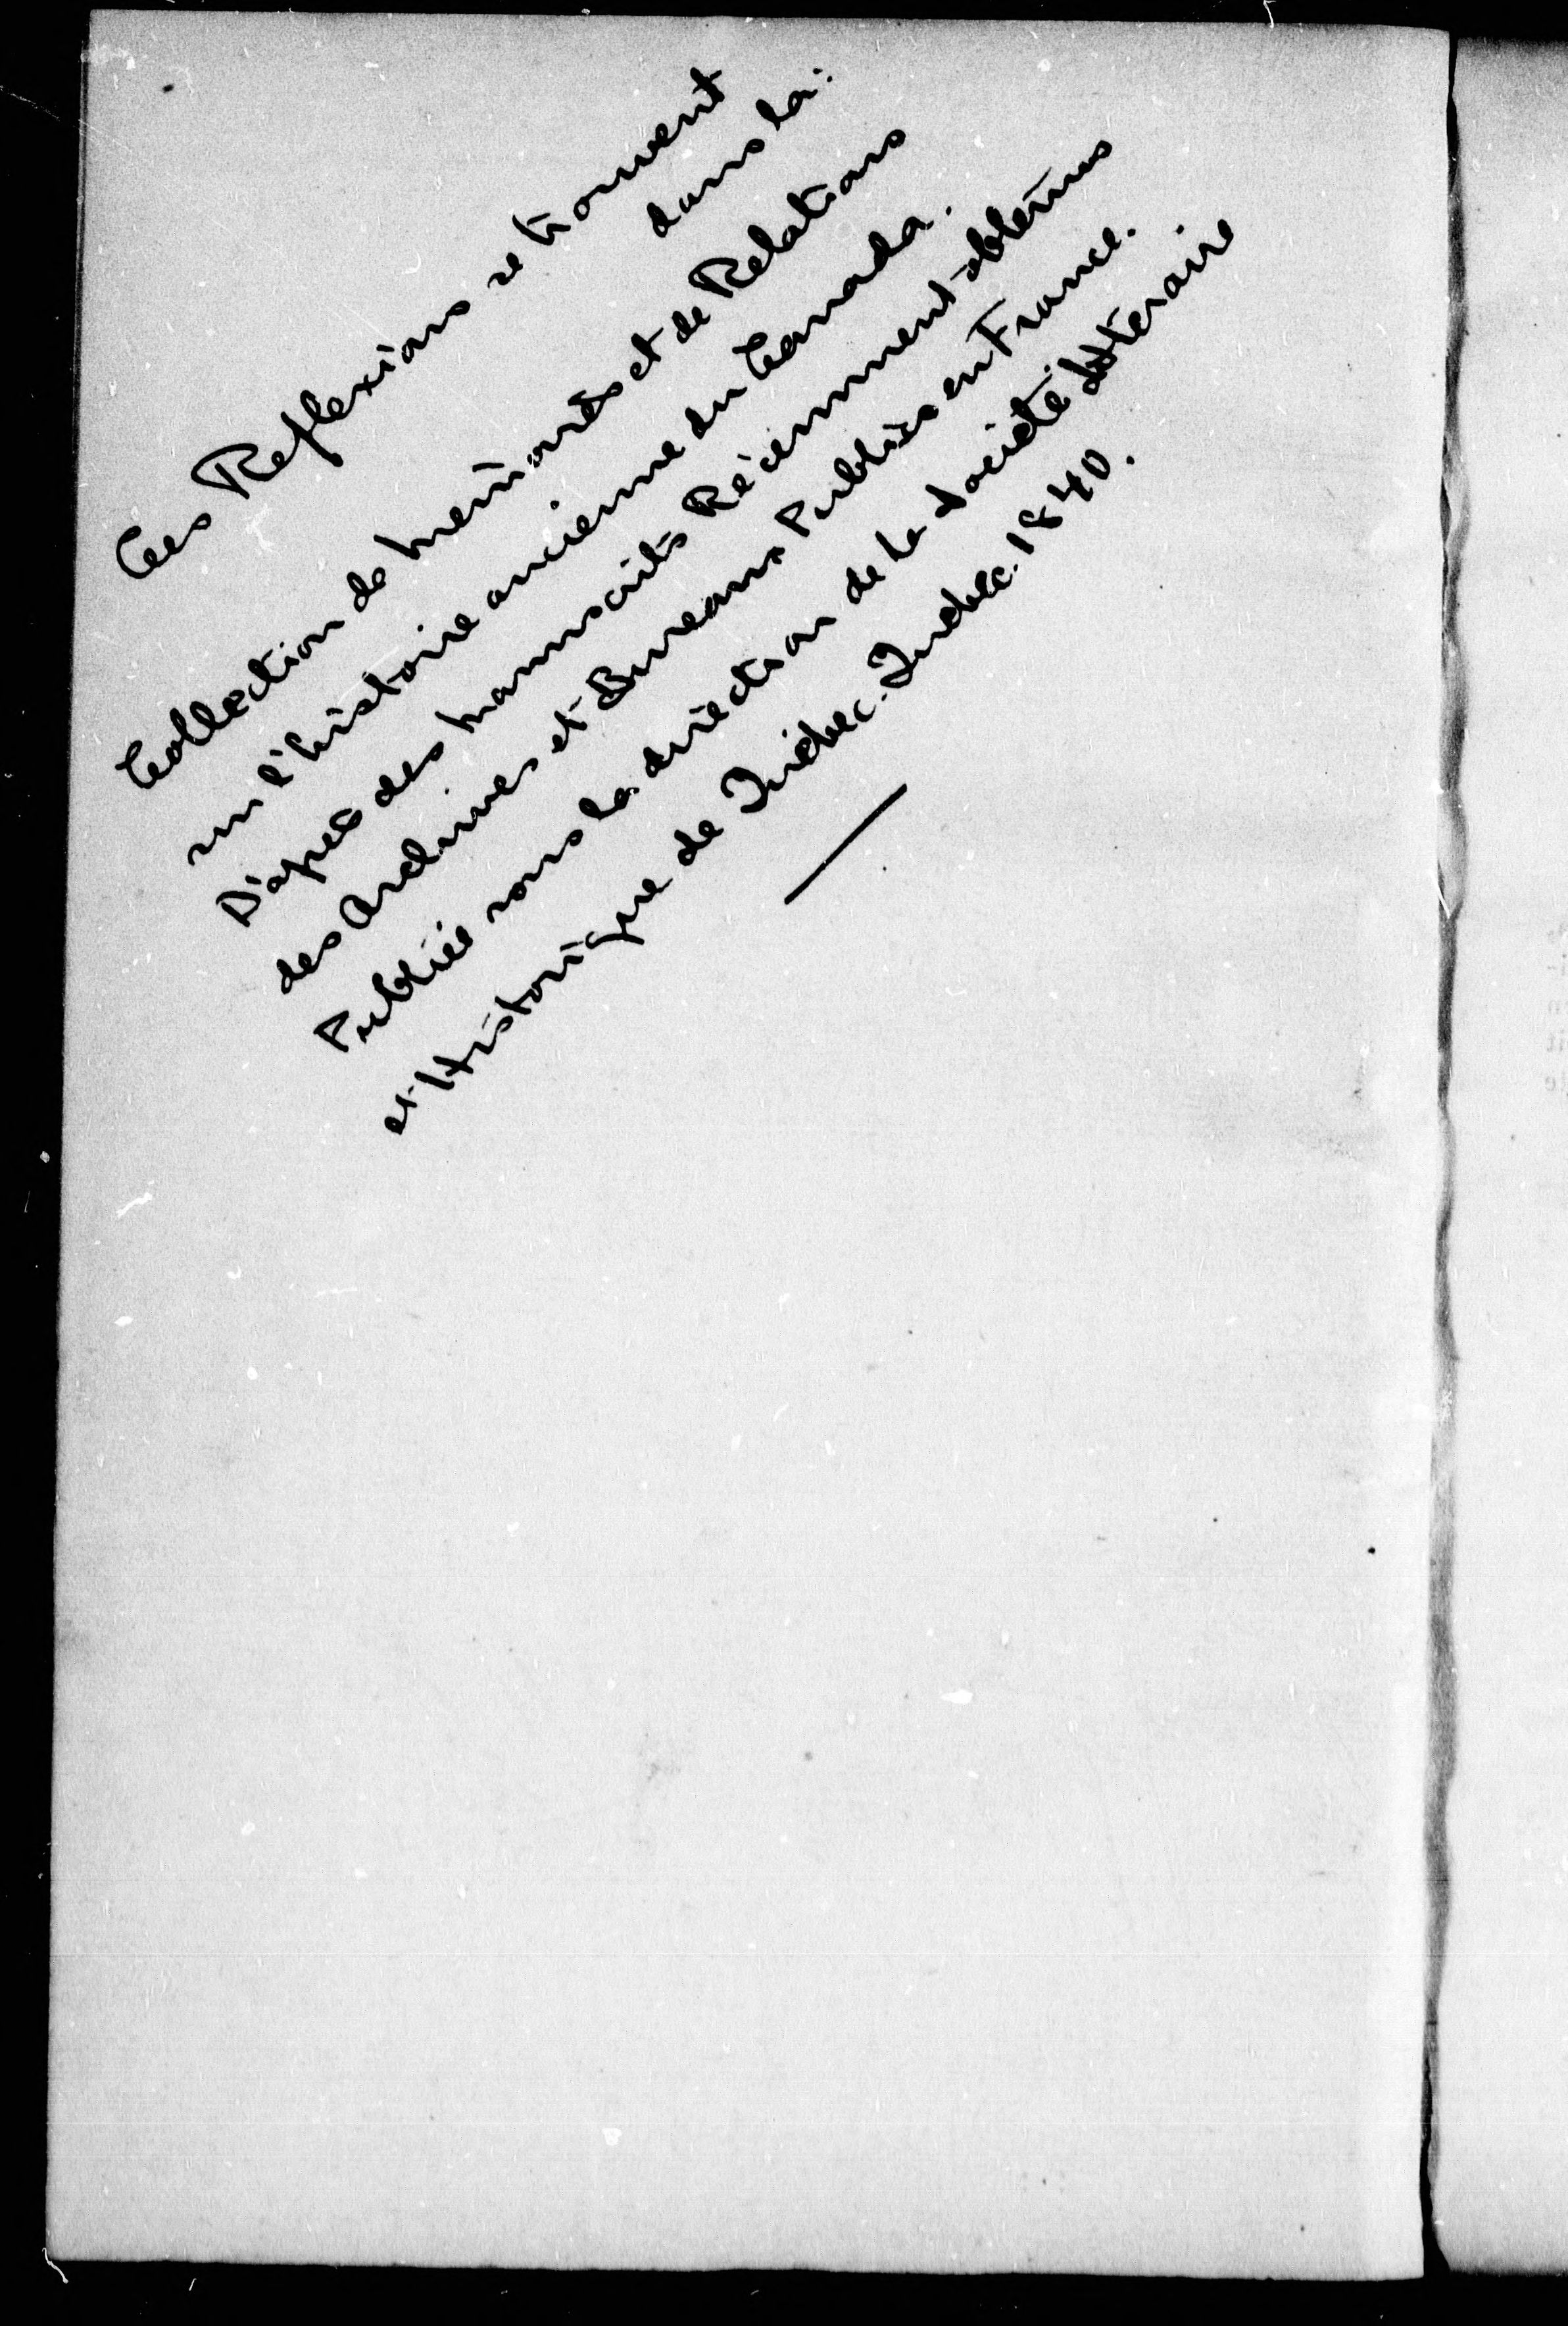 Ces Reflexions se trouvent
dans la:
Collection de memoires et de Relations
sur l'histoire ancienne du Canada.
D'après des manuscrits Récemment obtenus
des Archives et Bureaux Publics en France.
Publiée sous la direction de la Société Littéraire
et Historique de Québec. Québec. 1840.